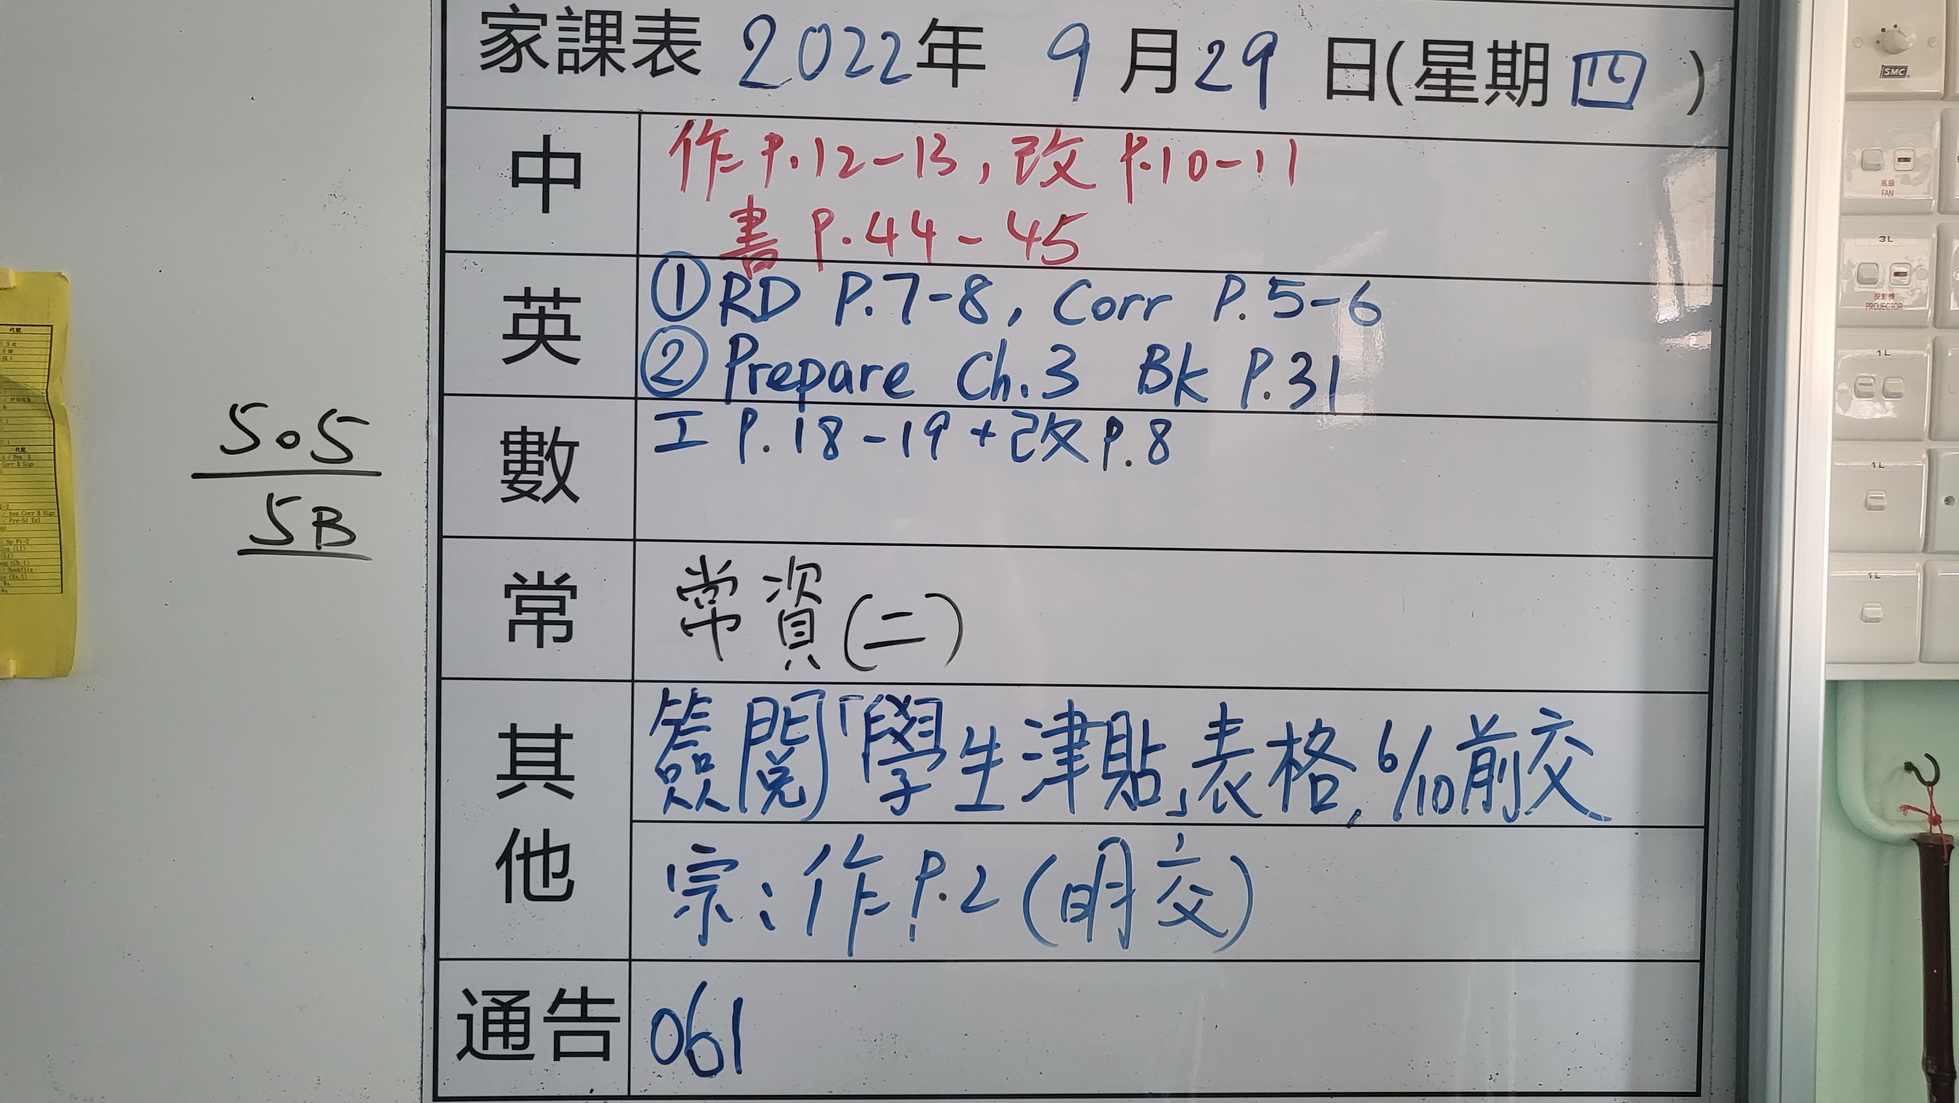 家課表 2022年 9月29日(星期四)
中
作P.12-13,改P.10-11
書P.44-45
英
①RD P.7-8, Corr P.5-6
②Prepare Ch.3 Bk P.31
數
工P.18-19+改P.8
常
常資(二)
其他
簽閱「學生津貼」表格,6/10前交
宗:作P.2(明交)
通告
061
505
5B
SMC
風扇
FAN
3L
投影機
PROJECTOR
1L
1L
1L